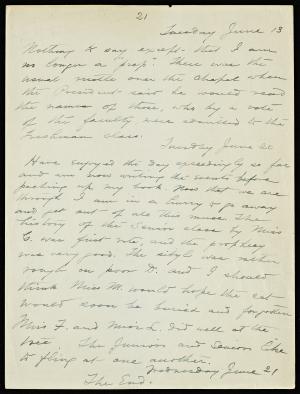 21
Tuesday June 13
Nothing to say except that I am
no longer a "prep". There was the
usual over the Chapel when
the President said he would read
the names of those, who by a vote
of the faculty, were admitted to the
Freshman class.
Tuesday June 20
Have enjoyed the day exceedingly so far
and am now writing the events before
packing up my book. Now that we are
through I am in a hurry to go away
and get out of all this muss. The
history of the Senior class by Miss
C. was first rate, and the prophesy
was very good. The sibyl was rather
rough on poor D. and I should
think Miss M. would hope the cat
would soon be buried and forgotten
Miss F. and Miss L. did well at the
tree. The Juniors and Seniors like
to fling at one another.
Wednesday June 21
The End.